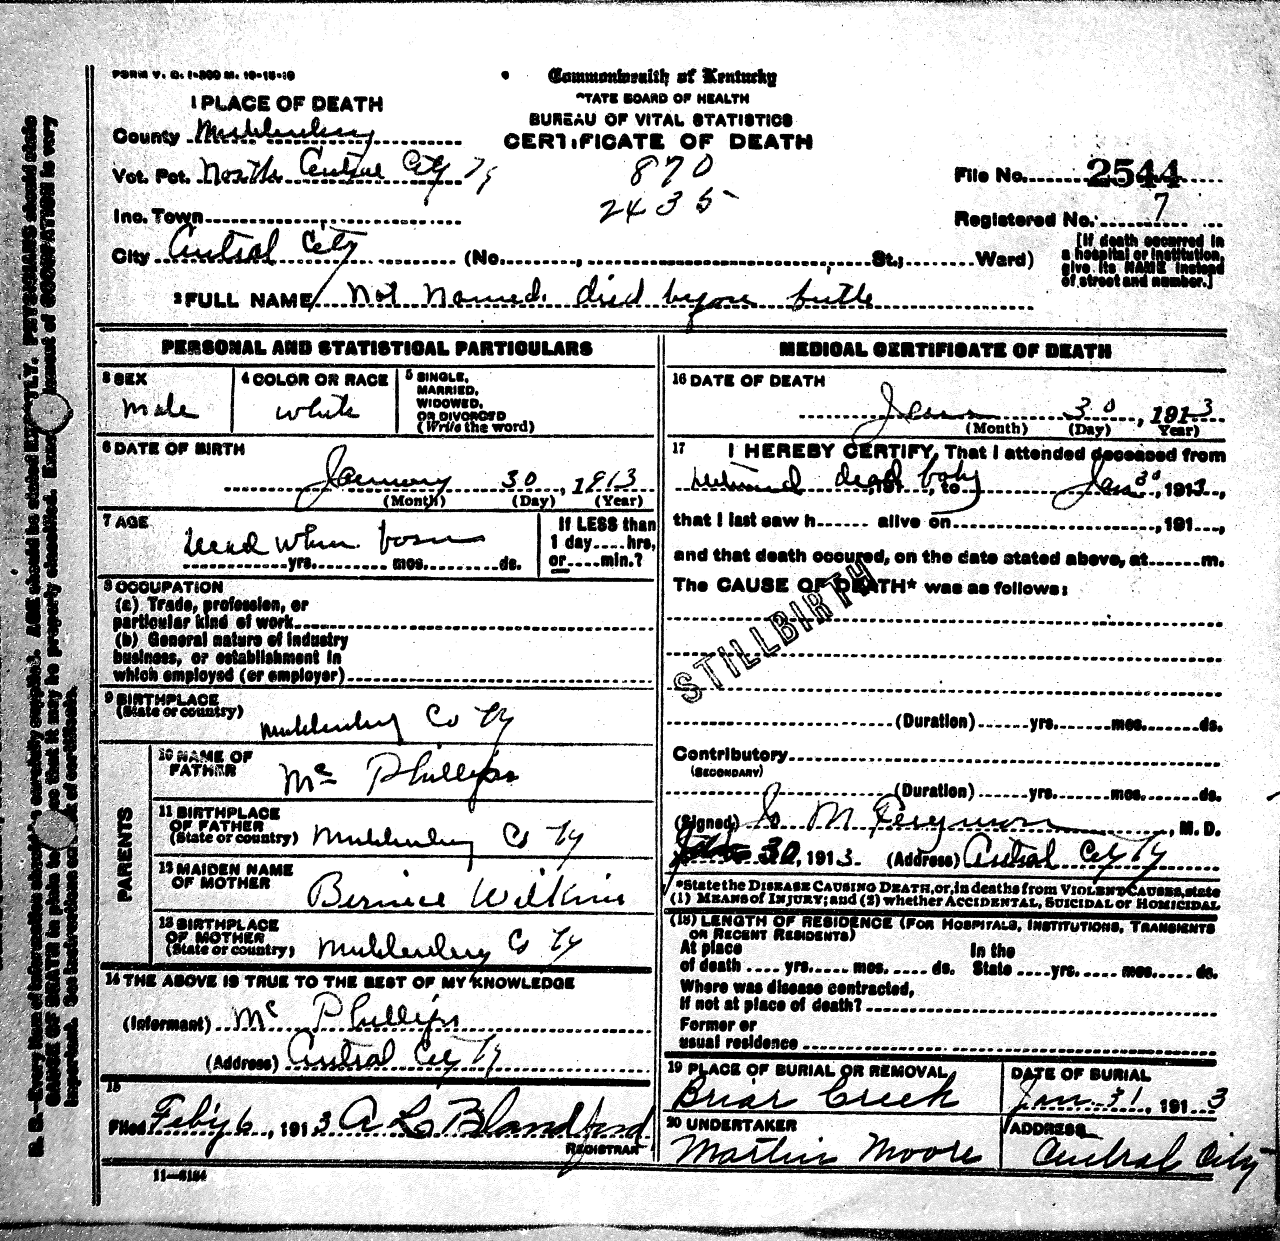 FORM V. S. 1-200 M. 10-15-10
Commonwealth of Kentucky
STATE BOARD OF HEALTH
BUREAU OF VITAL STATISTICS
CERTIFICATE OF DEATH
1 PLACE OF DEATH
County Muhlenberg
Vot. Pct. North Central City Ky
870
2435
File No. 2544
Inc. Town
Registered No. 7
City Central City (No. , St.; Ward)
[If death occurred in
a hospital or institution,
give its NAME instead
of street and number.]
2 FULL NAME Not Named died before birth
PERSONAL AND STATISTICAL PARTICULARS
3 SEX
Male
4 COLOR OR RACE
White
5 SINGLE,
MARRIED,
WIDOWED,
OR DIVORCED
(Write the word)
6 DATE OF BIRTH
January 30, 1913
(Month) (Day) (Year)
7 AGE
Dead when born
yrs. mos. ds.
If LESS than
1 day hrs,
or min.?
8 OCCUPATION
(a) Trade, profession, or
particular kind of work
(b) General nature of industry
business, or establishment in
which employed (or employer)
9 BIRTHPLACE
(State or country)
Muhlenberg Co Ky
PARENTS
10 NAME OF
FATHER
Mc Phillips
11 BIRTHPLACE
OF FATHER
(State or country) Muhlenberg Co Ky
12 MAIDEN NAME
OF MOTHER
Bernice Wilkins
13 BIRTHPLACE
OF MOTHER
(State or country) Muhlenberg Co Ky
14 THE ABOVE IS TRUE TO THE BEST OF MY KNOWLEDGE
(Informant) Mc Phillips
(Address) Central City Ky
15
Filed Feby 6, 1913 A L Blandford
REGISTRAR
11-5184
MEDICAL CERTIFICATE OF DEATH
16 DATE OF DEATH
Jan 30, 1913
(Month) (Day) Year)
17 I HEREBY CERTIFY, That I attended deceased from
dead body , 191 , to Jan 30, 1913,
that I last saw h alive on , 191 ,
and that death occured, on the date stated above, at m.
The CAUSE OF DEATH* was as follows:
STILLBIRTH
(Duration) yrs. mos. ds.
Contributory
(SECONDARY)
(Duration) yrs. mos. ds.
(Signed) Jo M Ferguson, M. D.
30, 1913. (Address) Central City Ky
*State the DISEASE CAUSING DEATH, or, in deaths from VIOLENT CAUSES, state
(1) MEANS of INJURY; and (2) whether ACCIDENTAL, SUICIDAL or HOMICIDAL
(18) LENGTH OF RESIDENCE (FOR HOSPITALS, INSTITUTIONS, TRANSIENTS
OR RECENT RESIDENTS)
At place
of death yrs. mos. ds.
In the
State yrs. mos. ds.
Where was disease contracted,
if not at place of death?
Former or
usual residence
19 PLACE OF BURIAL OR REMOVAL
Briar Creek
DATE OF BURIAL
Jan 31, 1913
20 UNDERTAKER
Martin Moore
ADDRESS
Central City
N. B.—Every item of information should be carefully supplied. AGE should be stated EXACTLY. PHYSICIANS should state
CAUSE OF DEATH in plain so that it may be properly classified. Exact statement of OCCUPATION is very
important. See instructions on back of certificate.